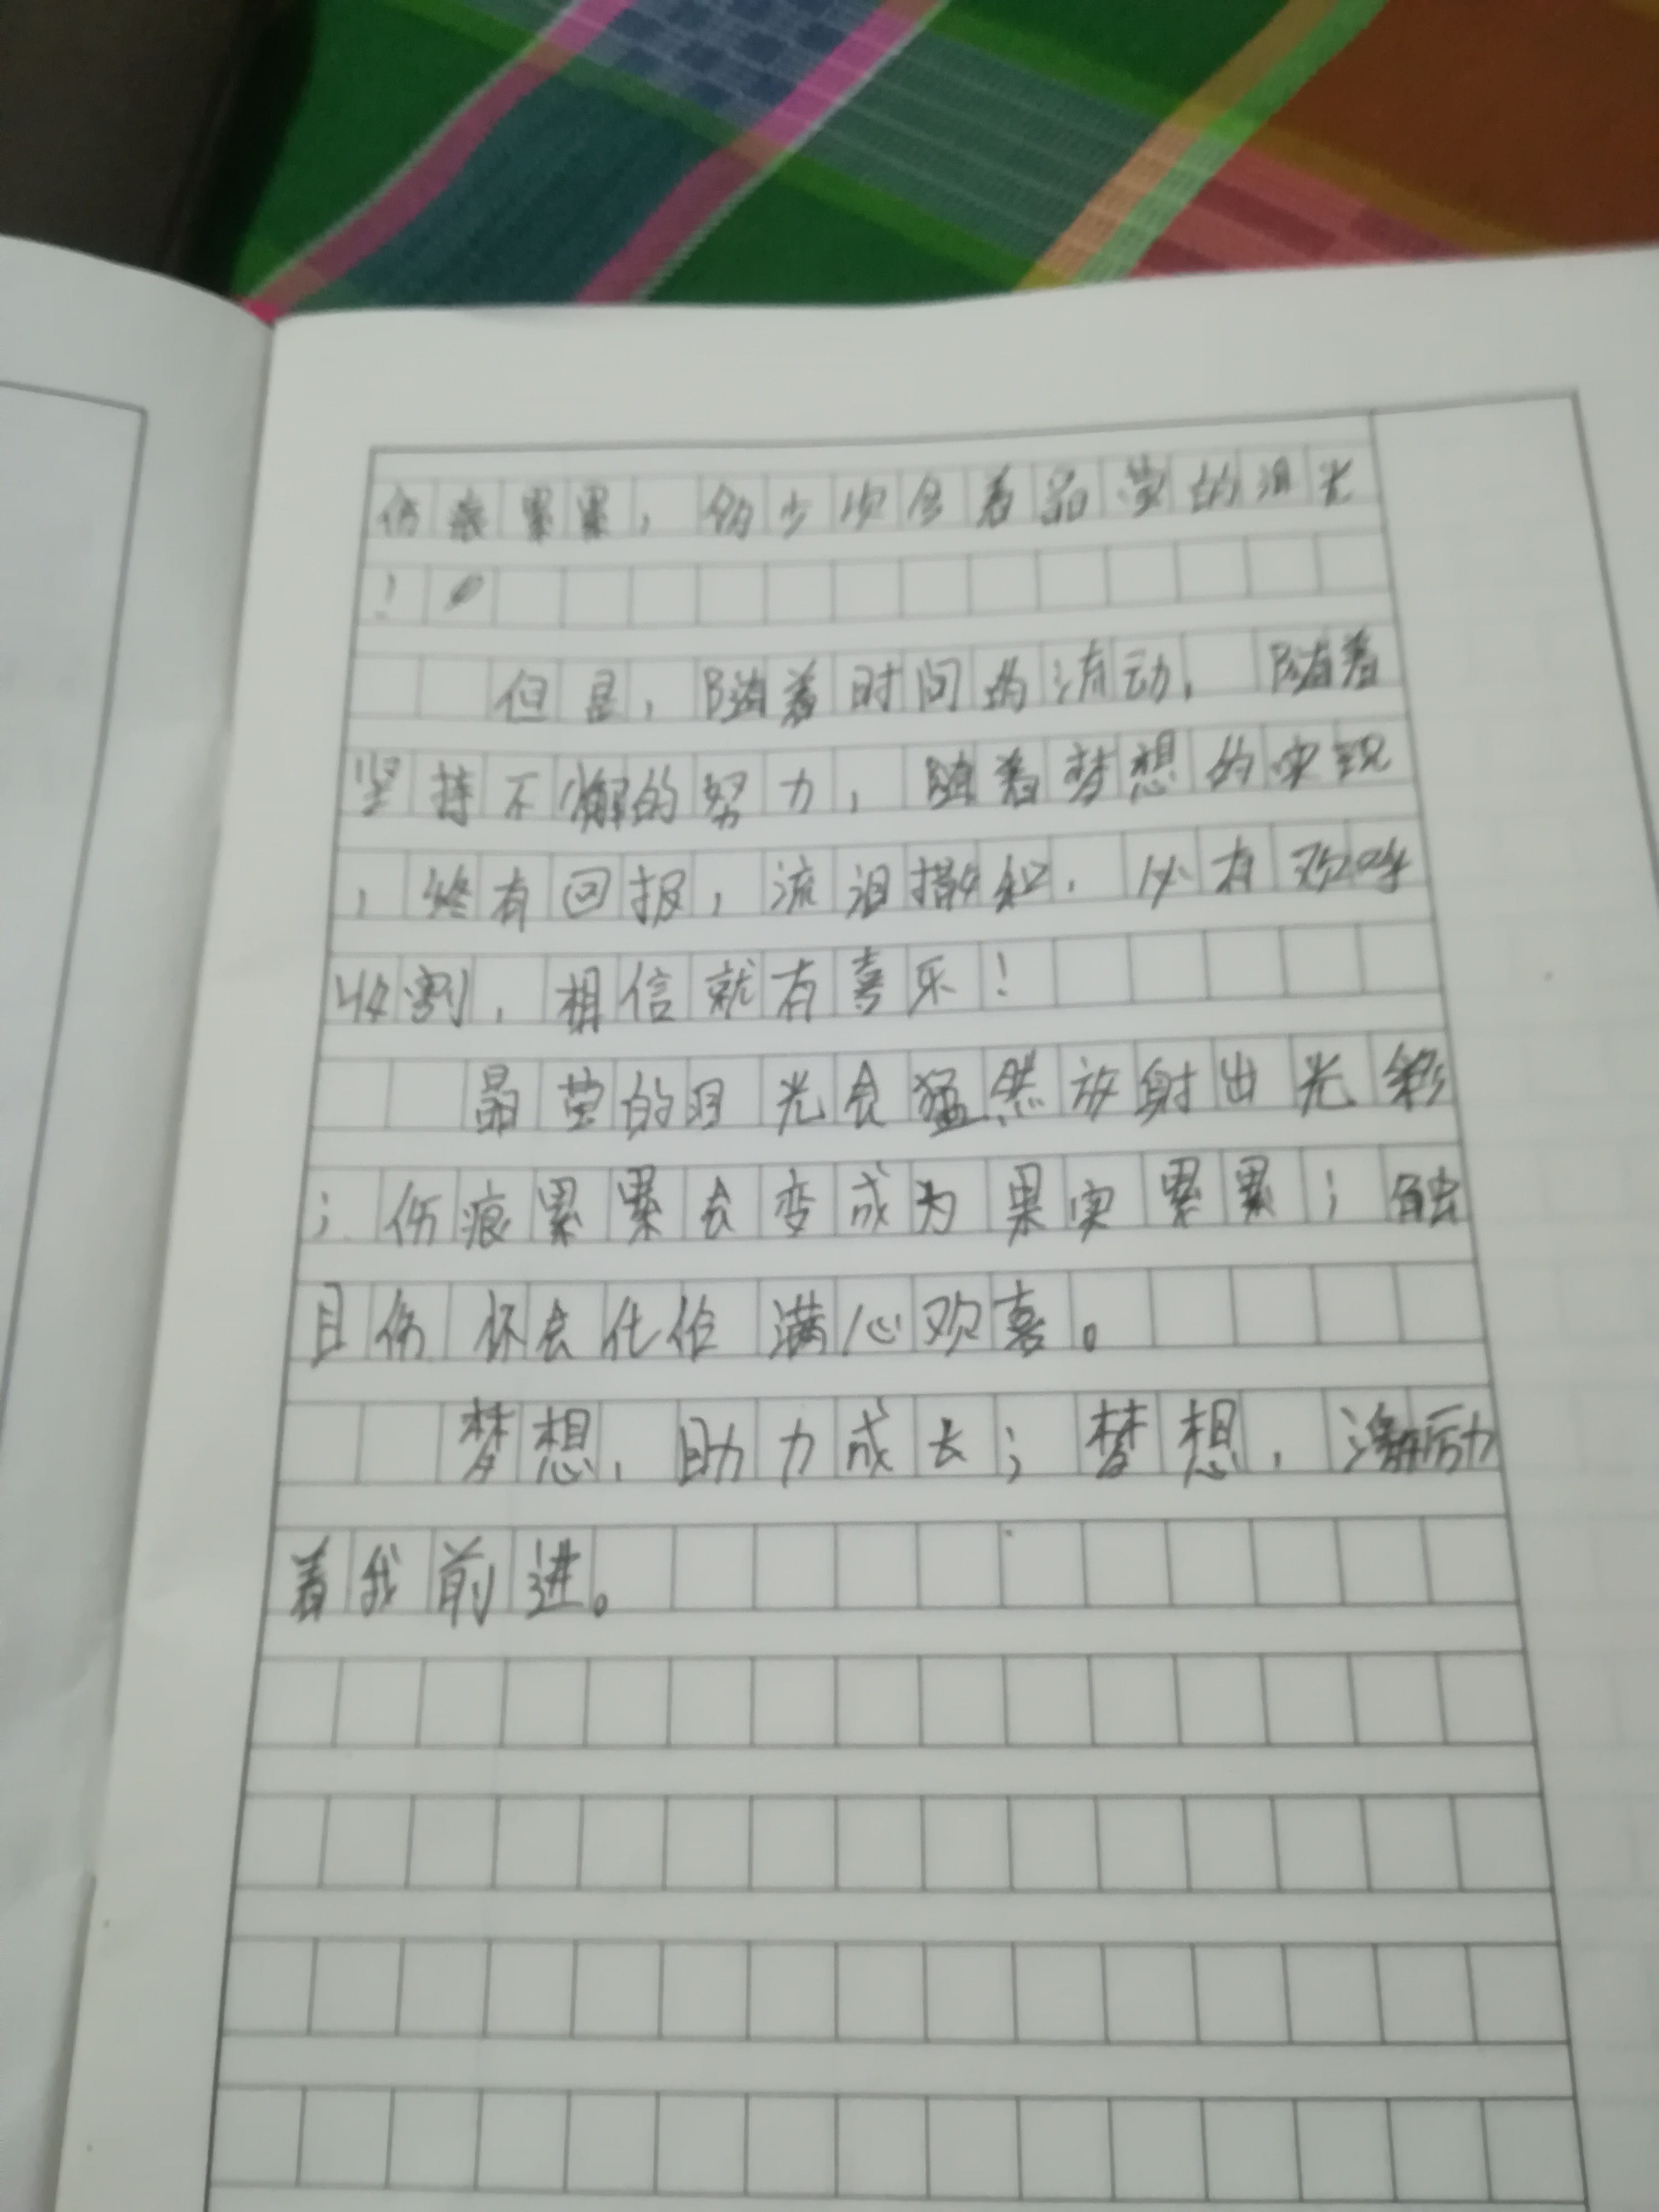 伤痕累累，多少次含着晶莹的泪光
！
但是，随着时间的流动，随着
坚持不懈的努力，随着梦想的实现
，终有回报，流泪撒种，必有欢呼
收割，相信就有喜乐！
晶莹的目光会猛然放射出光彩
；伤痕累累会变成为果实累累；触
目伤怀会化作满心欢喜。
梦想，助力成长；梦想，激励
着我前进。